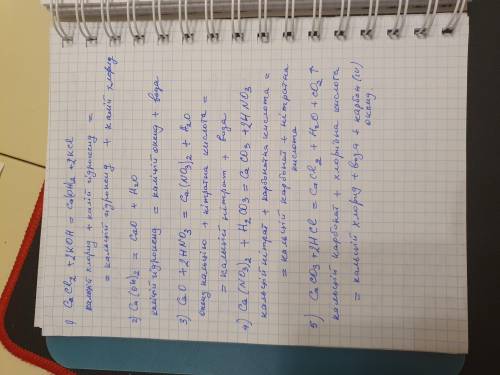 1) CaCl₂ + 2KOH = Ca(OH)₂ + 2KCl
кальцій хлорид + калій гідроксид =
= кальцій гідроксид + калій хлорид
2) Ca(OH)₂ = CaO + H₂O
кальцій гідроксид = кальцій оксид + вода
3) CaO + 2HNO₃ = Ca(NO₃)₂ + H₂O
оксид кальцію + нітратна кислота =
= кальцій нітрат + вода
4) Ca(NO₃)₂ + H₂CO₃ = CaCO₃ + 2HNO₃
кальцій нітрат + карбонатна кислота =
= кальцій карбонат + нітратна
кислота
5) CaCO₃ + 2HCl = CaCl₂ + H₂O + CO₂ ↑
кальцій карбонат + хлоридна кислота
= кальцій хлорид + вода + карбон (IV)
оксид